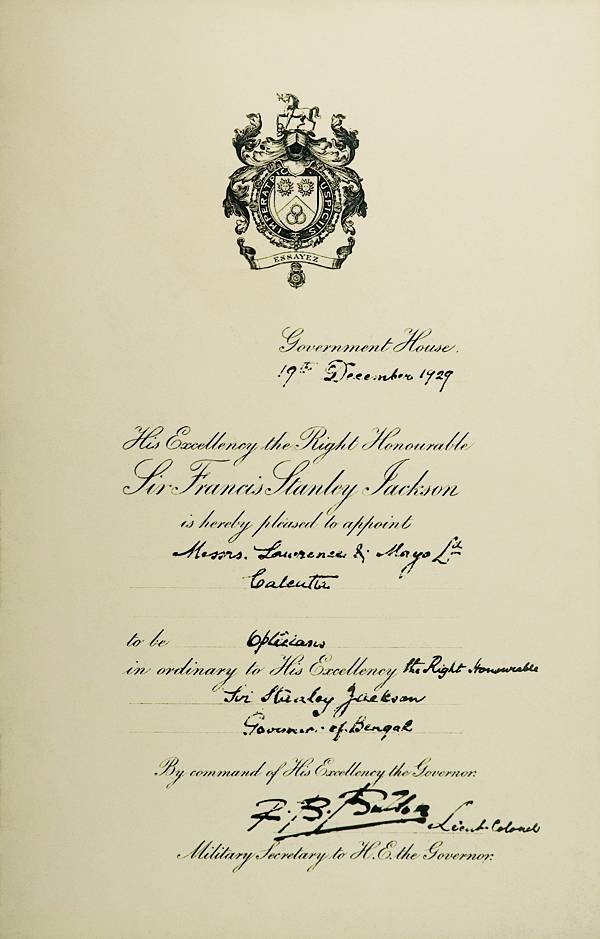 IMPERATRICIS AUSPICIIS
ESSAYEZ
Government House.
19th December 1929
His Excellency the Right Honourable
Sir Francis Stanley Jackson
is hereby pleased to appoint
Messrs. Lawrence & Mayo Ld
Calcutta
to be Opticians
in ordinary to His Excellency the Right Honourable
Sir Stanley Jackson
Governor of Bengal
By command of His Excellency the Governor.
Lieut-Colonel
Military Secretary to H.E. the Governor.